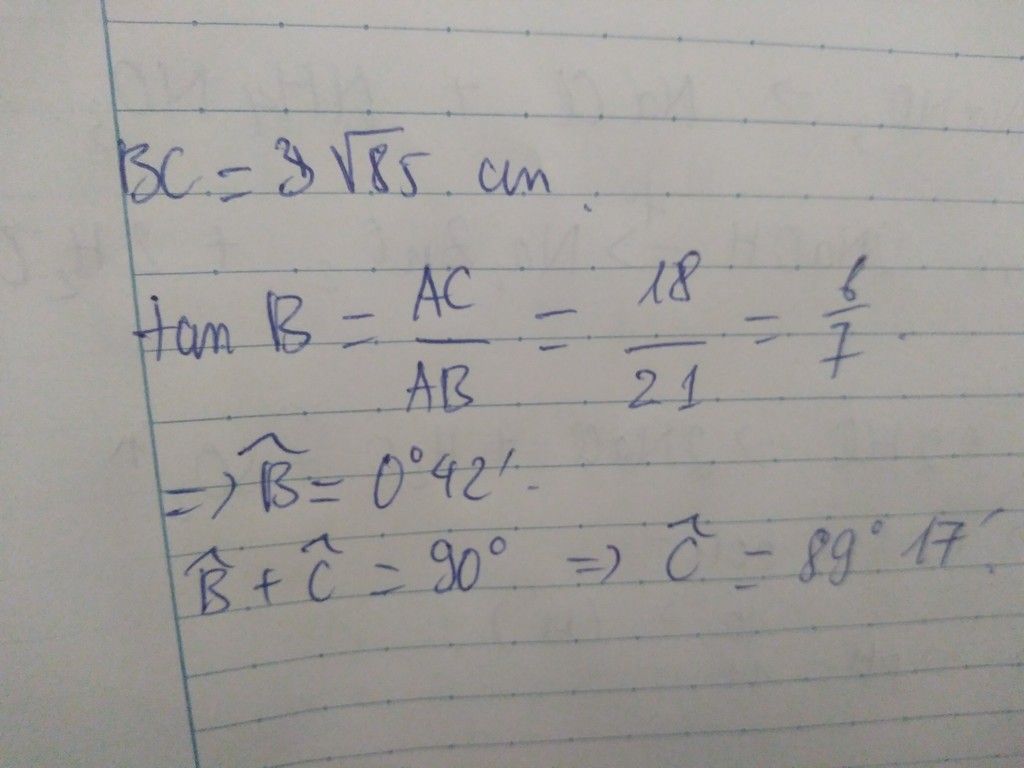 BC = 3√85 cm.
tan B = AC/AB = 18/21 = 6/7.
=> B̂ = 0°42'.
B̂ + Ĉ = 90° => Ĉ = 89°17'.